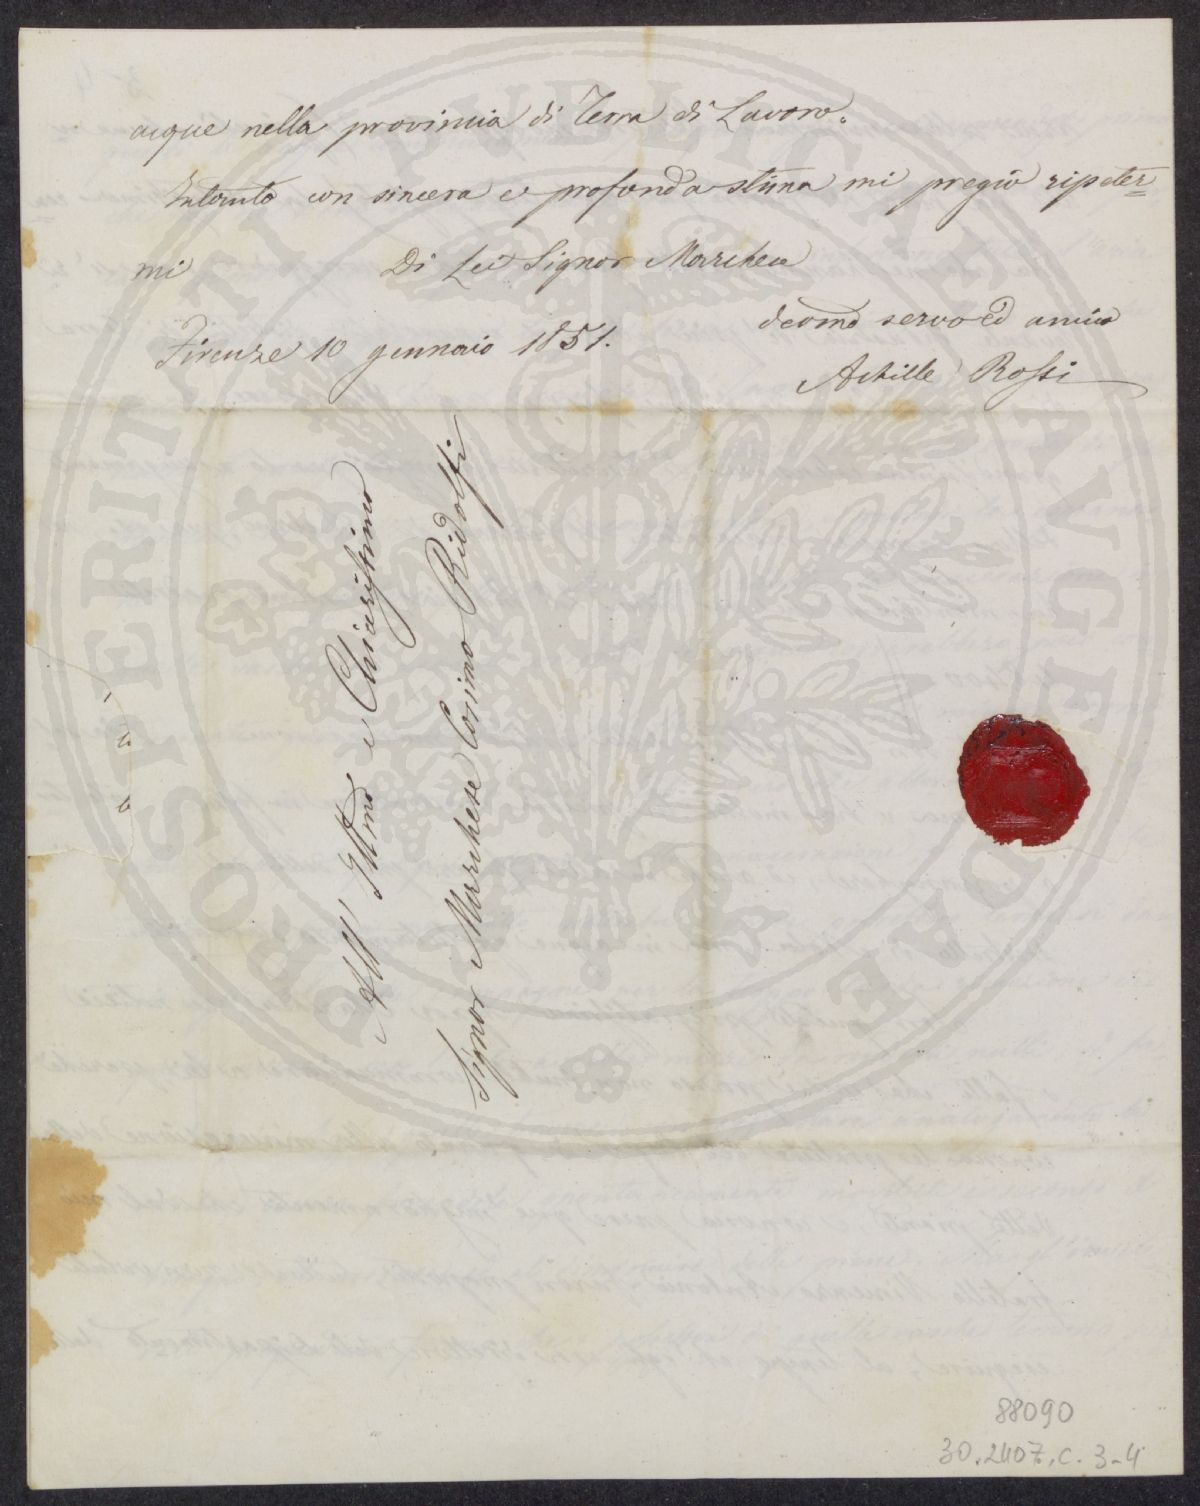 acque nella provincia di Terra di Lavoro.
Intanto con sincera e profonda stima mi pregio ripeter=
mi Di Lei Signor Marchese
Firenze 10 gennaio 1851.
devmo servo ed amico
Achille Rossi
All' Illmo e Chiarissimo
Signor Marchese Cosimo Ridolfi
PROSPERITATI PVBLICAE AVGENDAE
88090
30.2407.c.3-4